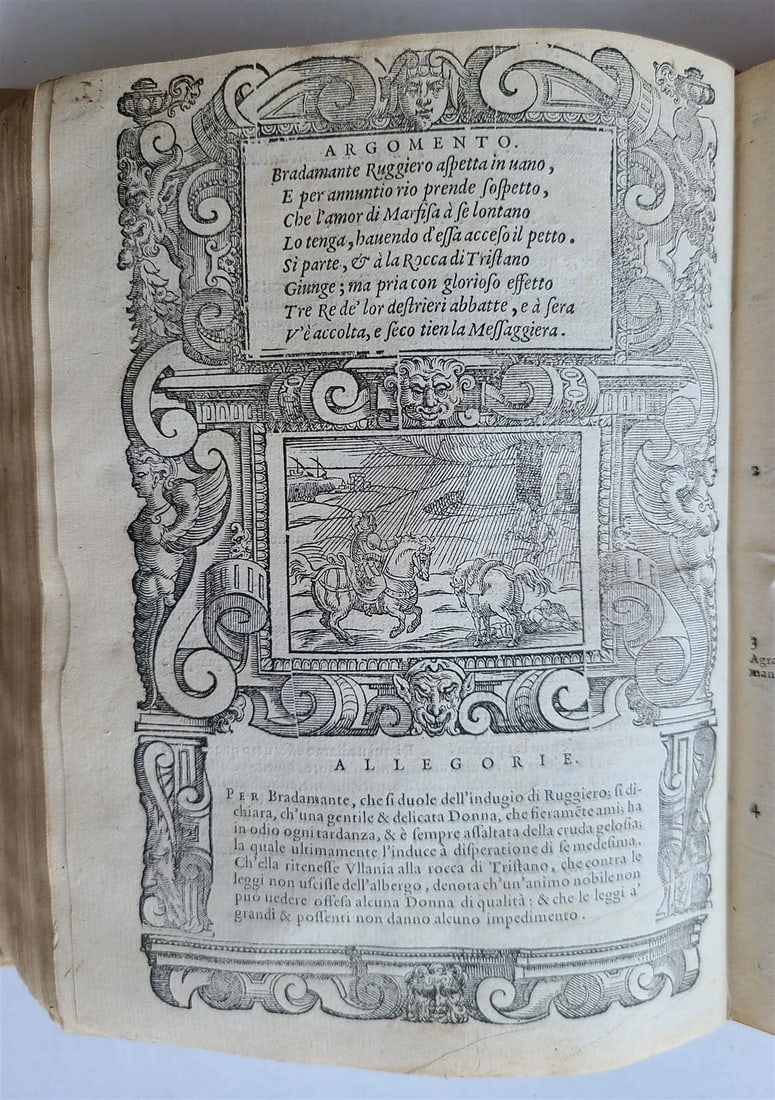 ARGOMENTO.
Bradamante Ruggiero aſpetta in uano,
E per annuntio rio prende ſoſpetto,
Che l'amor di Marfiſa à ſe lontano
Lo tenga, hauendo d'eſſa acceſo il petto.
Si parte, & à la Rocca di Triſtano
Giunge; ma pria con glorioſo effetto
Tre Re de' lor deſtrieri abbatte, e à ſera
V'è accolta, e ſeco tien la Meſſaggiera.
ALLEGORIE.
PER Bradamante, che ſi duole dell'indugio di Ruggiero; ſi di-
chiara, ch'una gentile & delicata Donna, che fieramēte ami; ha
in odio ogni tardanza, & è ſempre aſſaltata della cruda geloſia;
la quale ultimamente l'induce à diſperatione di ſe medeſima.
Ch'ella riteneſſe Vllania alla rocca di Triſtano, che contra le
leggi non uſciſſe dell'albergo, denota ch'un'animo nobile non
può uedere offeſa alcuna Donna di qualità: & che le leggi a'
grandi & poſſenti non danno alcuno impedimento.
2
3
Agra
man
4